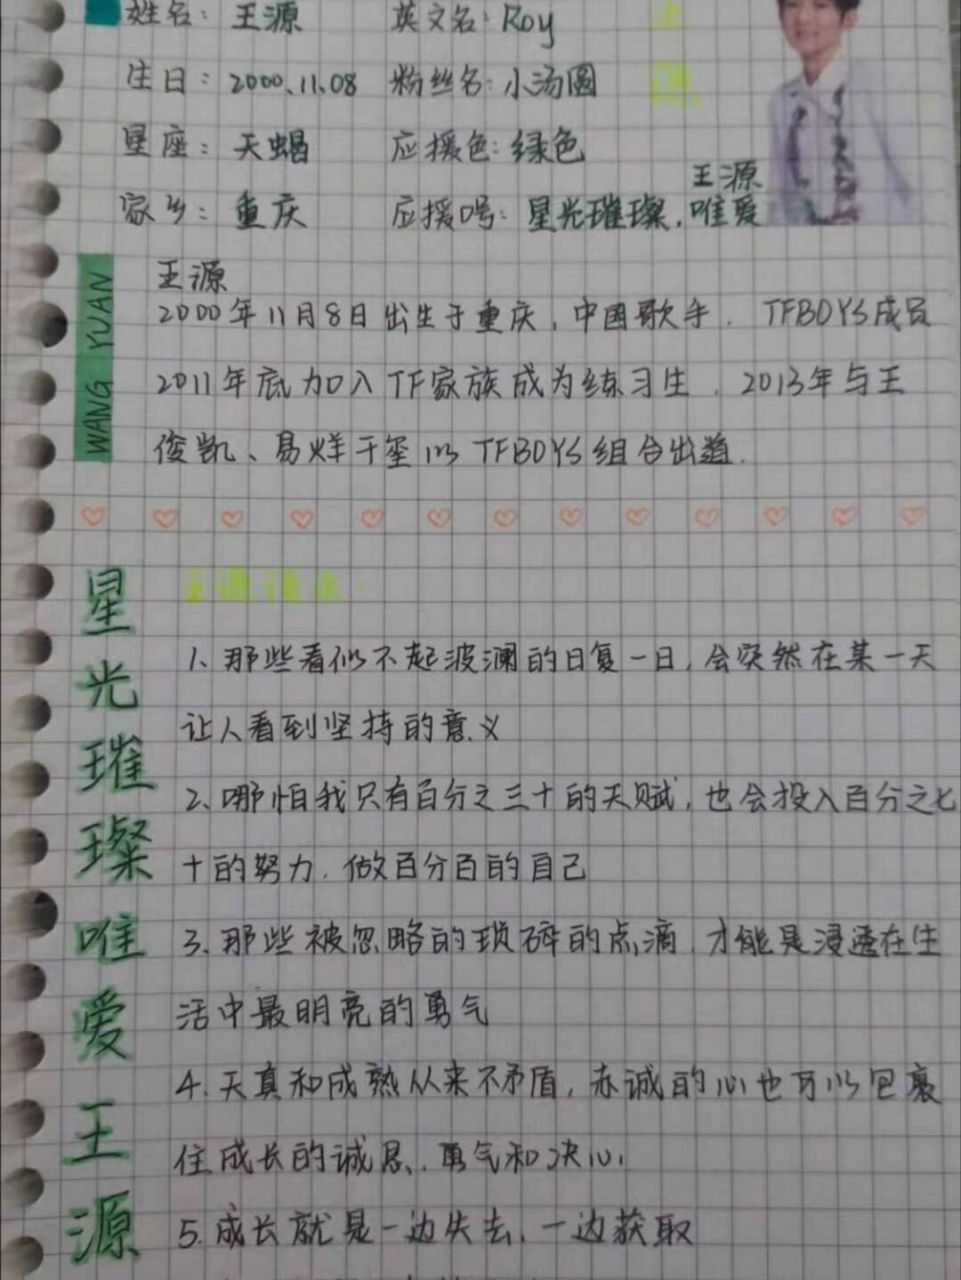 姓名：王源 英文名：Roy
生日：2000.11.08 粉丝名：小汤圆
星座：天蝎 应援色：绿色
家乡：重庆 应援口号：星光璀璨，唯爱
王源
WANG YUAN
王源
2000年11月8日出生于重庆，中国歌手．TFBOYS成员
2011年底加入TF家族成为练习生．2013年与王
俊凯、易烊千玺以TFBOYS组合出道．
星光璀璨唯爱王源
王源语录
1、那些看似不起波澜的日复一日，会突然在某一天
让人看到坚持的意义
2、哪怕我只有百分之三十的天赋，也会投入百分之七
十的努力．做百分百的自己
3、那些被忽略的琐碎的点滴，才能是浸透在生
活中最明亮的勇气
4.天真和成熟从来不矛盾，赤诚的心也可以包裹
住成长的诚恳、勇气和决心
5.成长就是一边失去，一边获取